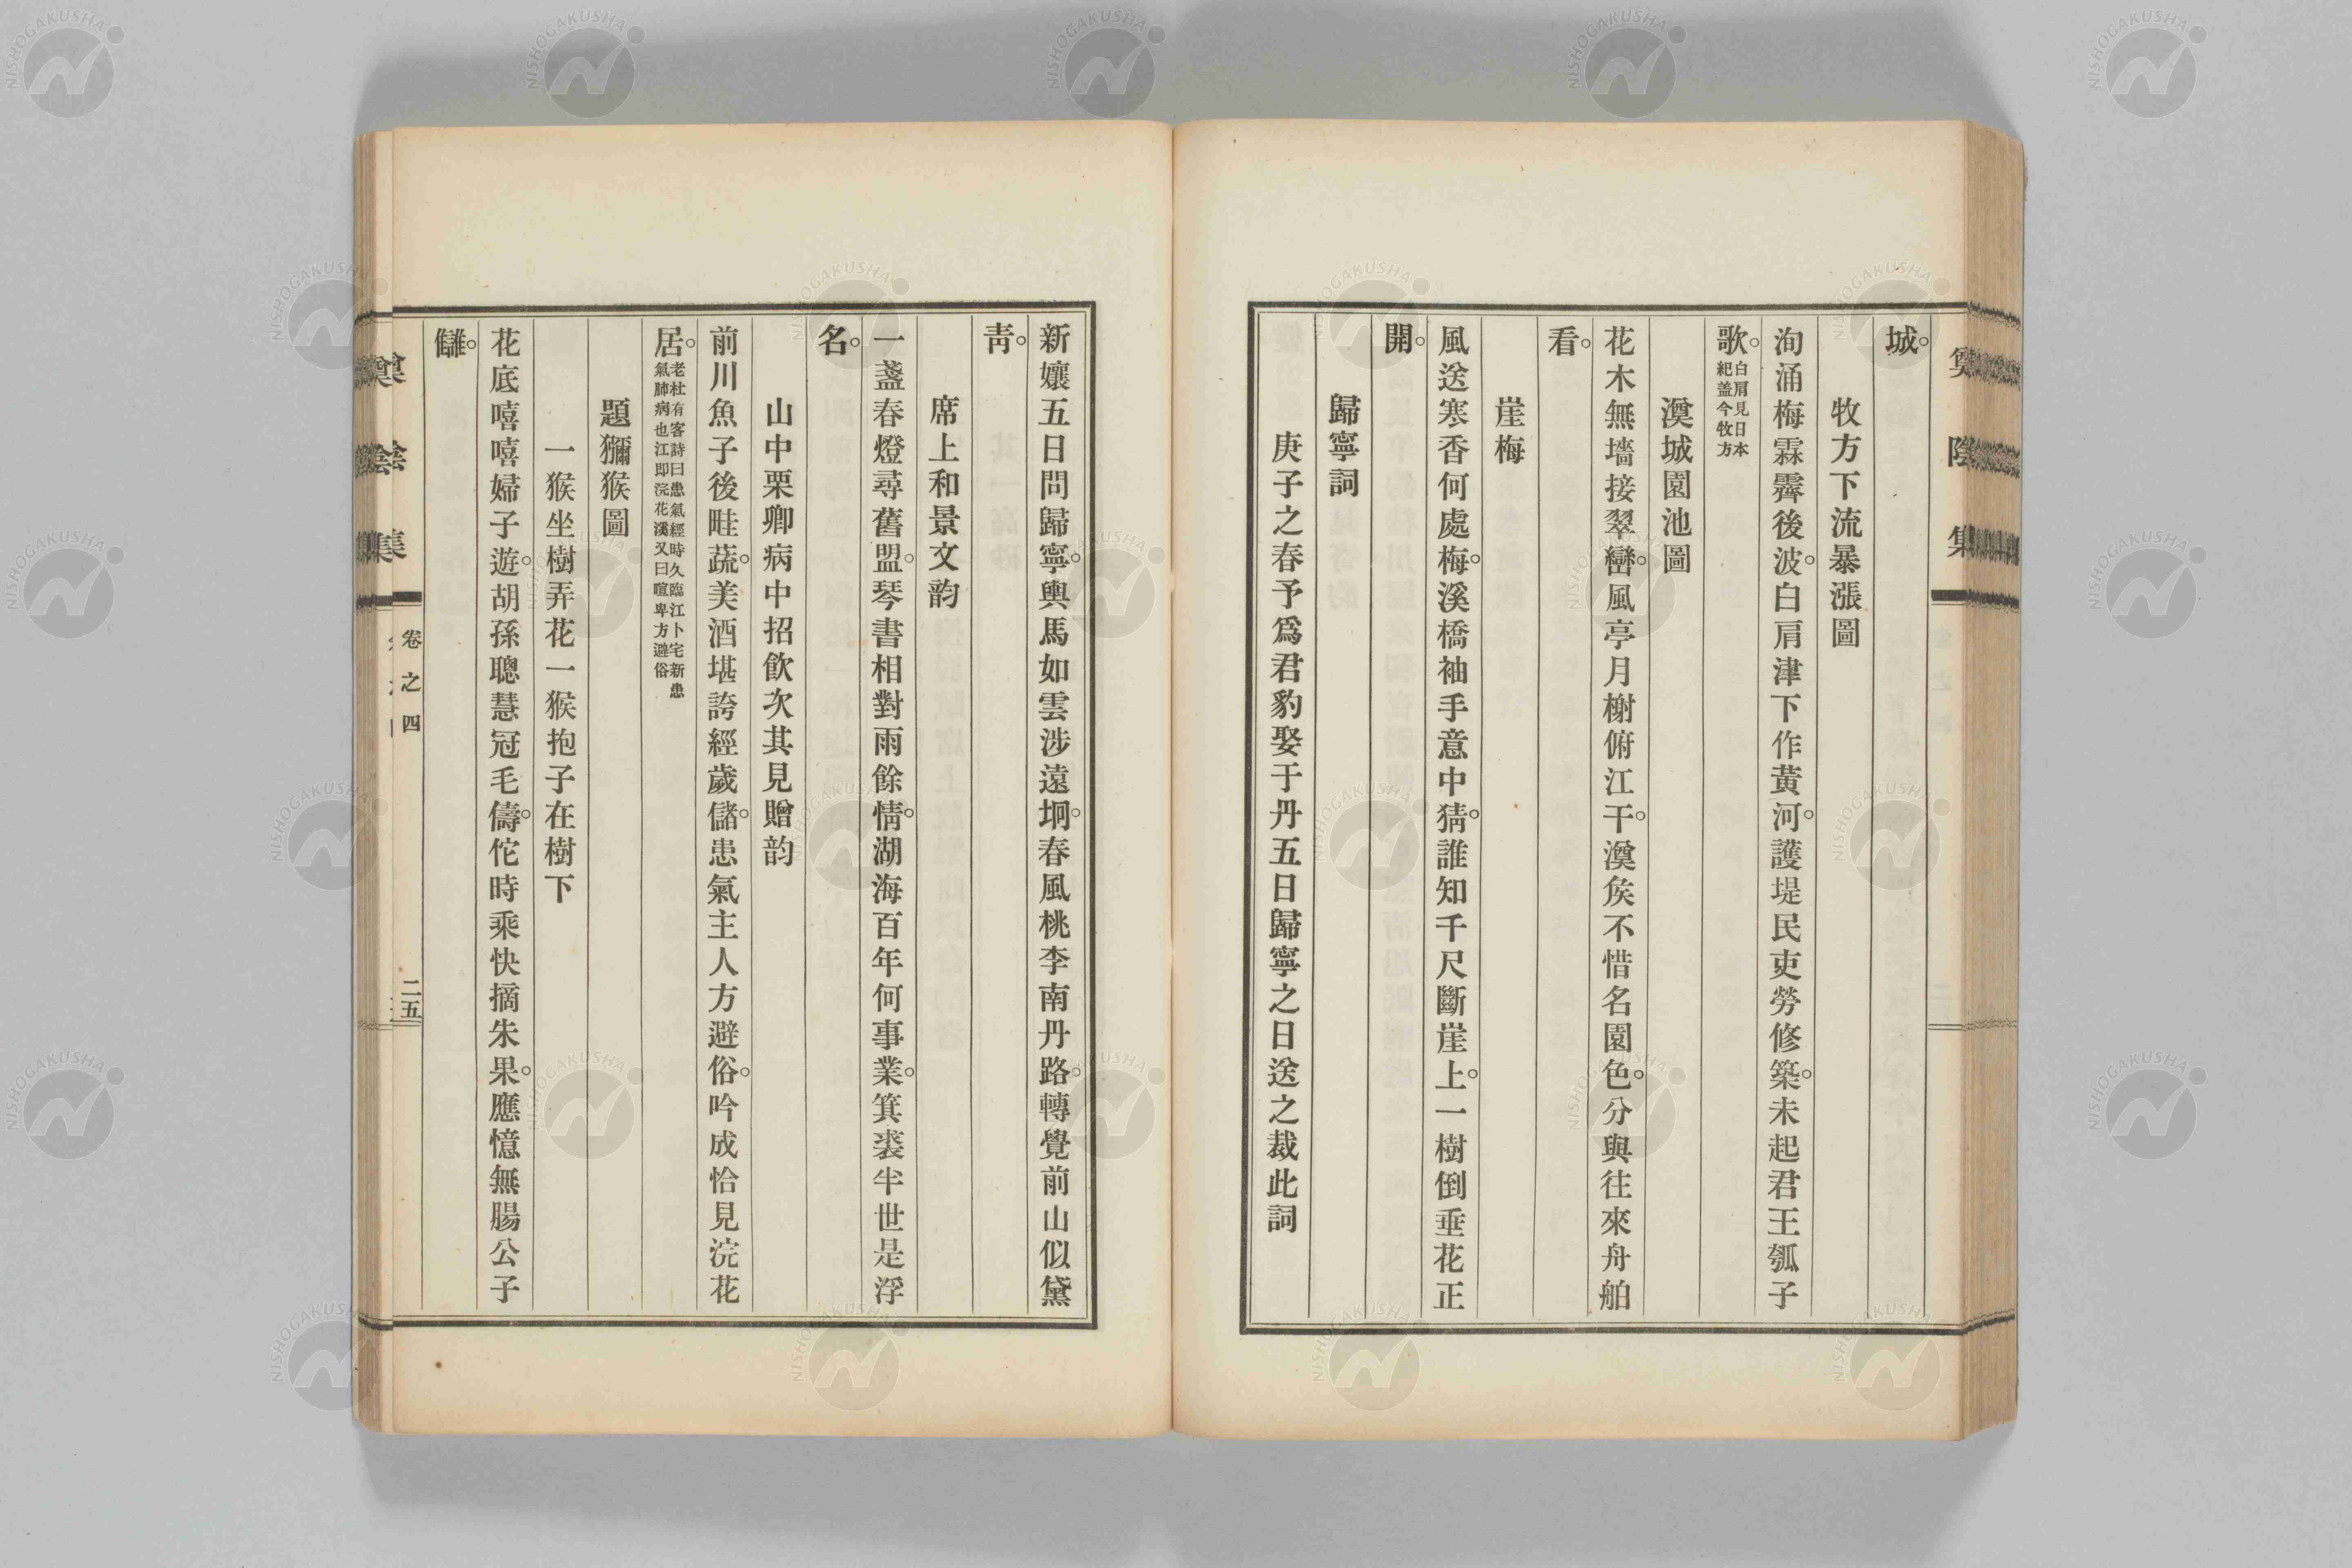 城。
牧方下流暴漲圖
洶涌梅霖霽後波。白肩津下作黃河。護堤民吏勞修築。未起君王瓠子
歌。白肩見日本
紀盖今牧方
澳城園池圖
花木無墻接翠巒。風亭月榭俯江干。澳矦不惜名園色。分與往來舟舶
看。
崖梅
風送寒香何處梅。溪橋袖手意中猜。誰知千尺斷崖上。一樹倒垂花正
開。
歸寧詞
庚子之春予爲君豹娶于丹五日歸寧之日送之裁此詞
新孃五日問歸寧。輿馬如雲涉遠坰。春風桃李南丹路。轉覺前山似黛
靑。
席上和景文韵
一盞春燈尋舊盟。琴書相對雨餘情。湖海百年何事業。箕裘半世是浮
名。
山中栗卿病中招飲次其見贈韵
前川魚子後畦蔬。美酒堪誇經歲儲。患氣主人方避俗。吟成恰見浣花
居。老杜有客詩曰患氣經時久臨江卜宅新患
氣肺病也江即浣花溪又曰喧卑方避俗
題獼猴圖
一猴坐樹弄花一猴抱子在樹下
花底嘻嘻婦子遊。胡孫聰慧冠毛儔。佗時乘快摘朱果。應憶無腸公子
讎。
卷之四
二五